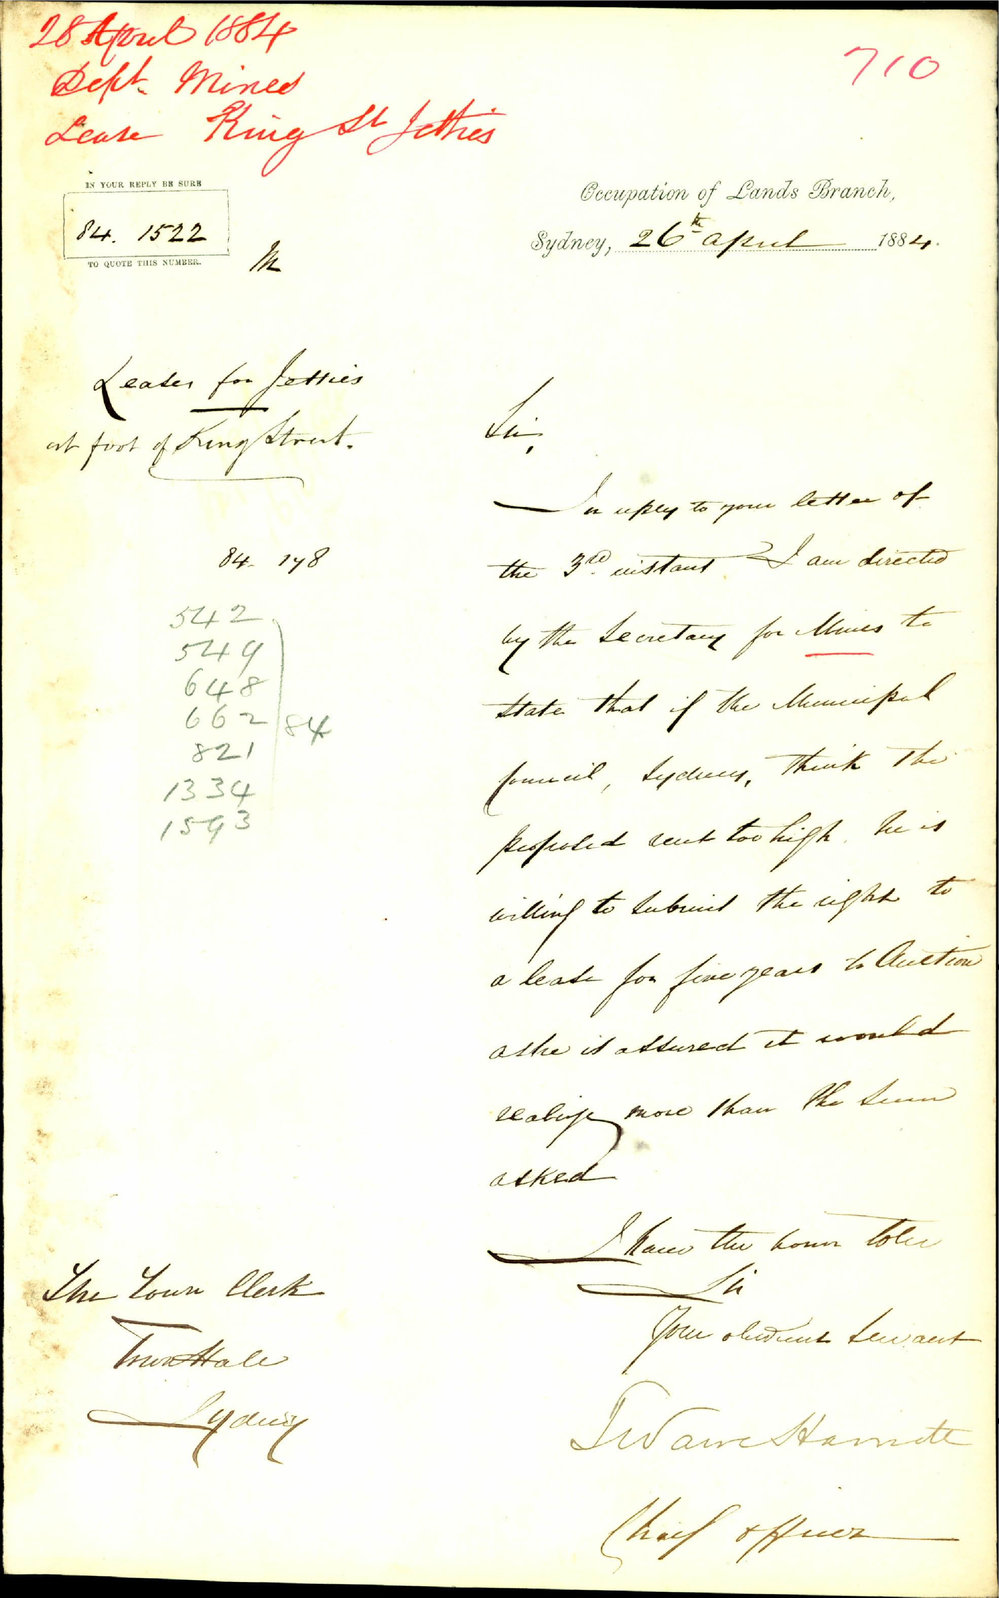 28 April 1884
Dept. Mines
Lease King St Jetties
710
IN YOUR REPLY BE SURE
84. 1522
TO QUOTE THIS NUMBER.
M
Occupation of Lands Branch,
Sydney, 26th April 1884.
Leases for Jetties
at foot of King Street.
84. 178
542
549
648
662
821
1334
1593
84
Sir,
In reply to your letter of
the 3rd. instant I am directed
by the Secretary for Mines to
state that if the Municipal
Council, Sydney, think the
proposed rent too high. he is
willing to submit the right to
a lease for five years to Auction
as he is assured it would
realise more than the sum
asked
I have the honor to be
Sir
Your obedient Servant
Chief Officer
The Town Clerk
Town Hall
Sydney